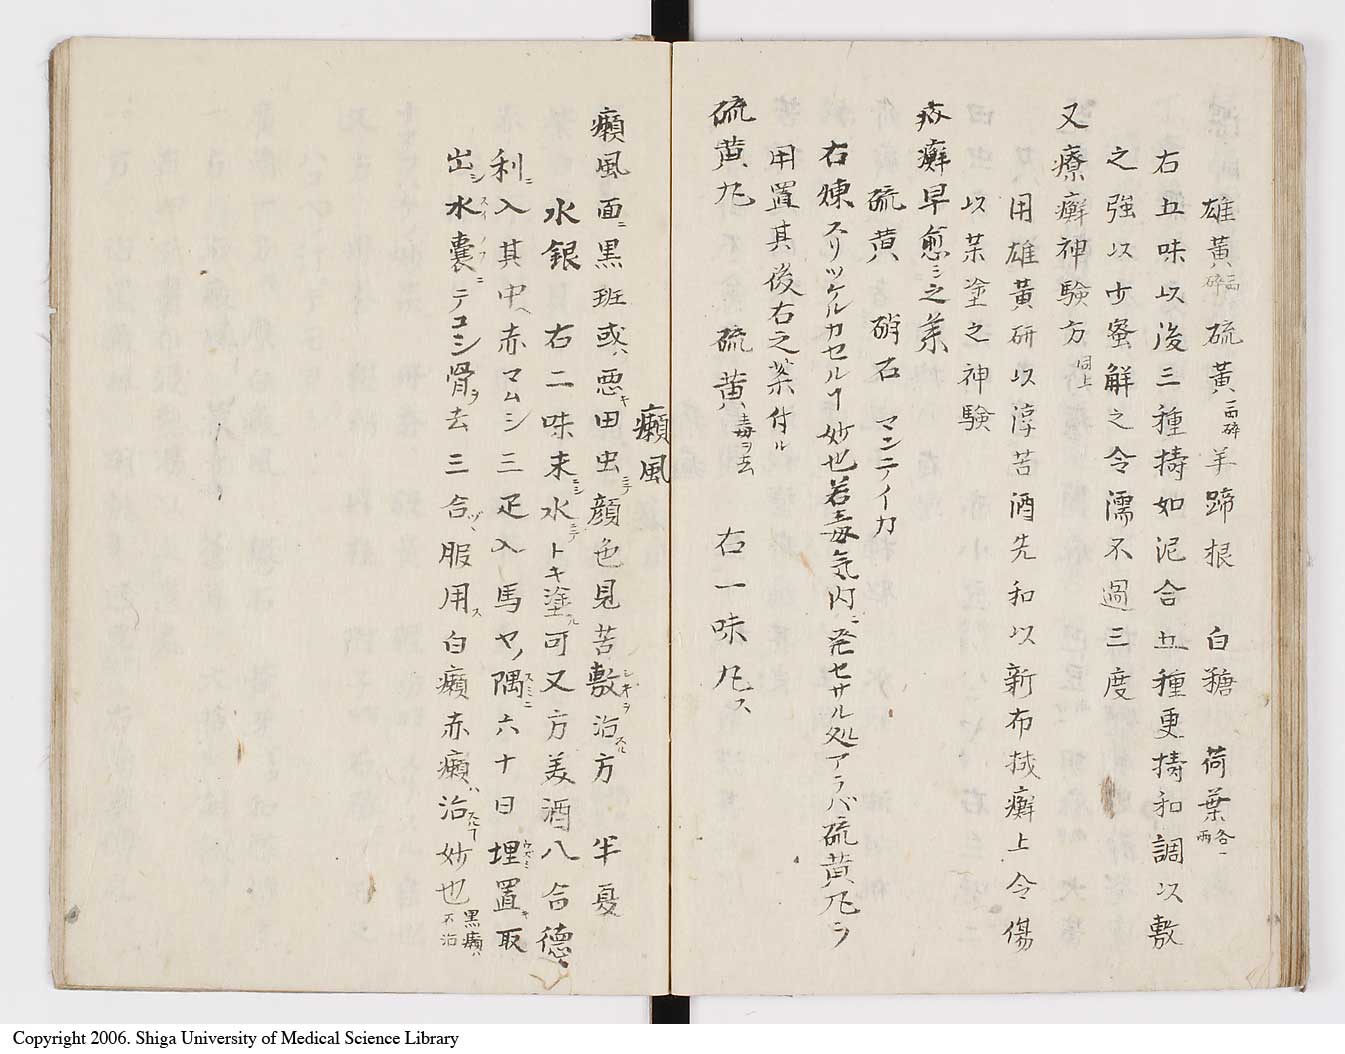 雄黄一両碎 硫黄一両碎 羊蹄根 白糖 荷葉各一両
右五味以後三種擣如泥合五種更擣和調以敷
之強以少蜜解之令濡不過三度
又療癬神験方同上
用雄黄研以淳苦酒先和以新布拭癬上令傷
以茱塗之神験
疥癬早愈シ之薬
硫黄 硝石 マンテイカ
右煉スリツケルカセルヿ妙也若毒気内ニ発セサル処アラバ硫黄丸ヲ
用置其後右之薬付ル
硫黄丸 硫黄毒ヲ去 右一味丸ス
癩風
癩風面ニ黒班或ハ悪キ田虫ミテ顔色見苦敷シキヲ治スル方 半夏
水銀 右二味末ニシ水ミテトキ塗ル可又方美酒八合徳
利ニ入其中ヘ赤マムシ三疋入馬ヤノ隅スミニ六十日埋ウズミ置キ取
出シ水嚢スイノフニテコシ骨ヲ去三合ヅヽ服用ス白癩赤癩ハ治スルヿ妙也黒癩ハ不治
Copyright 2006. Shiga University of Medical Science Library